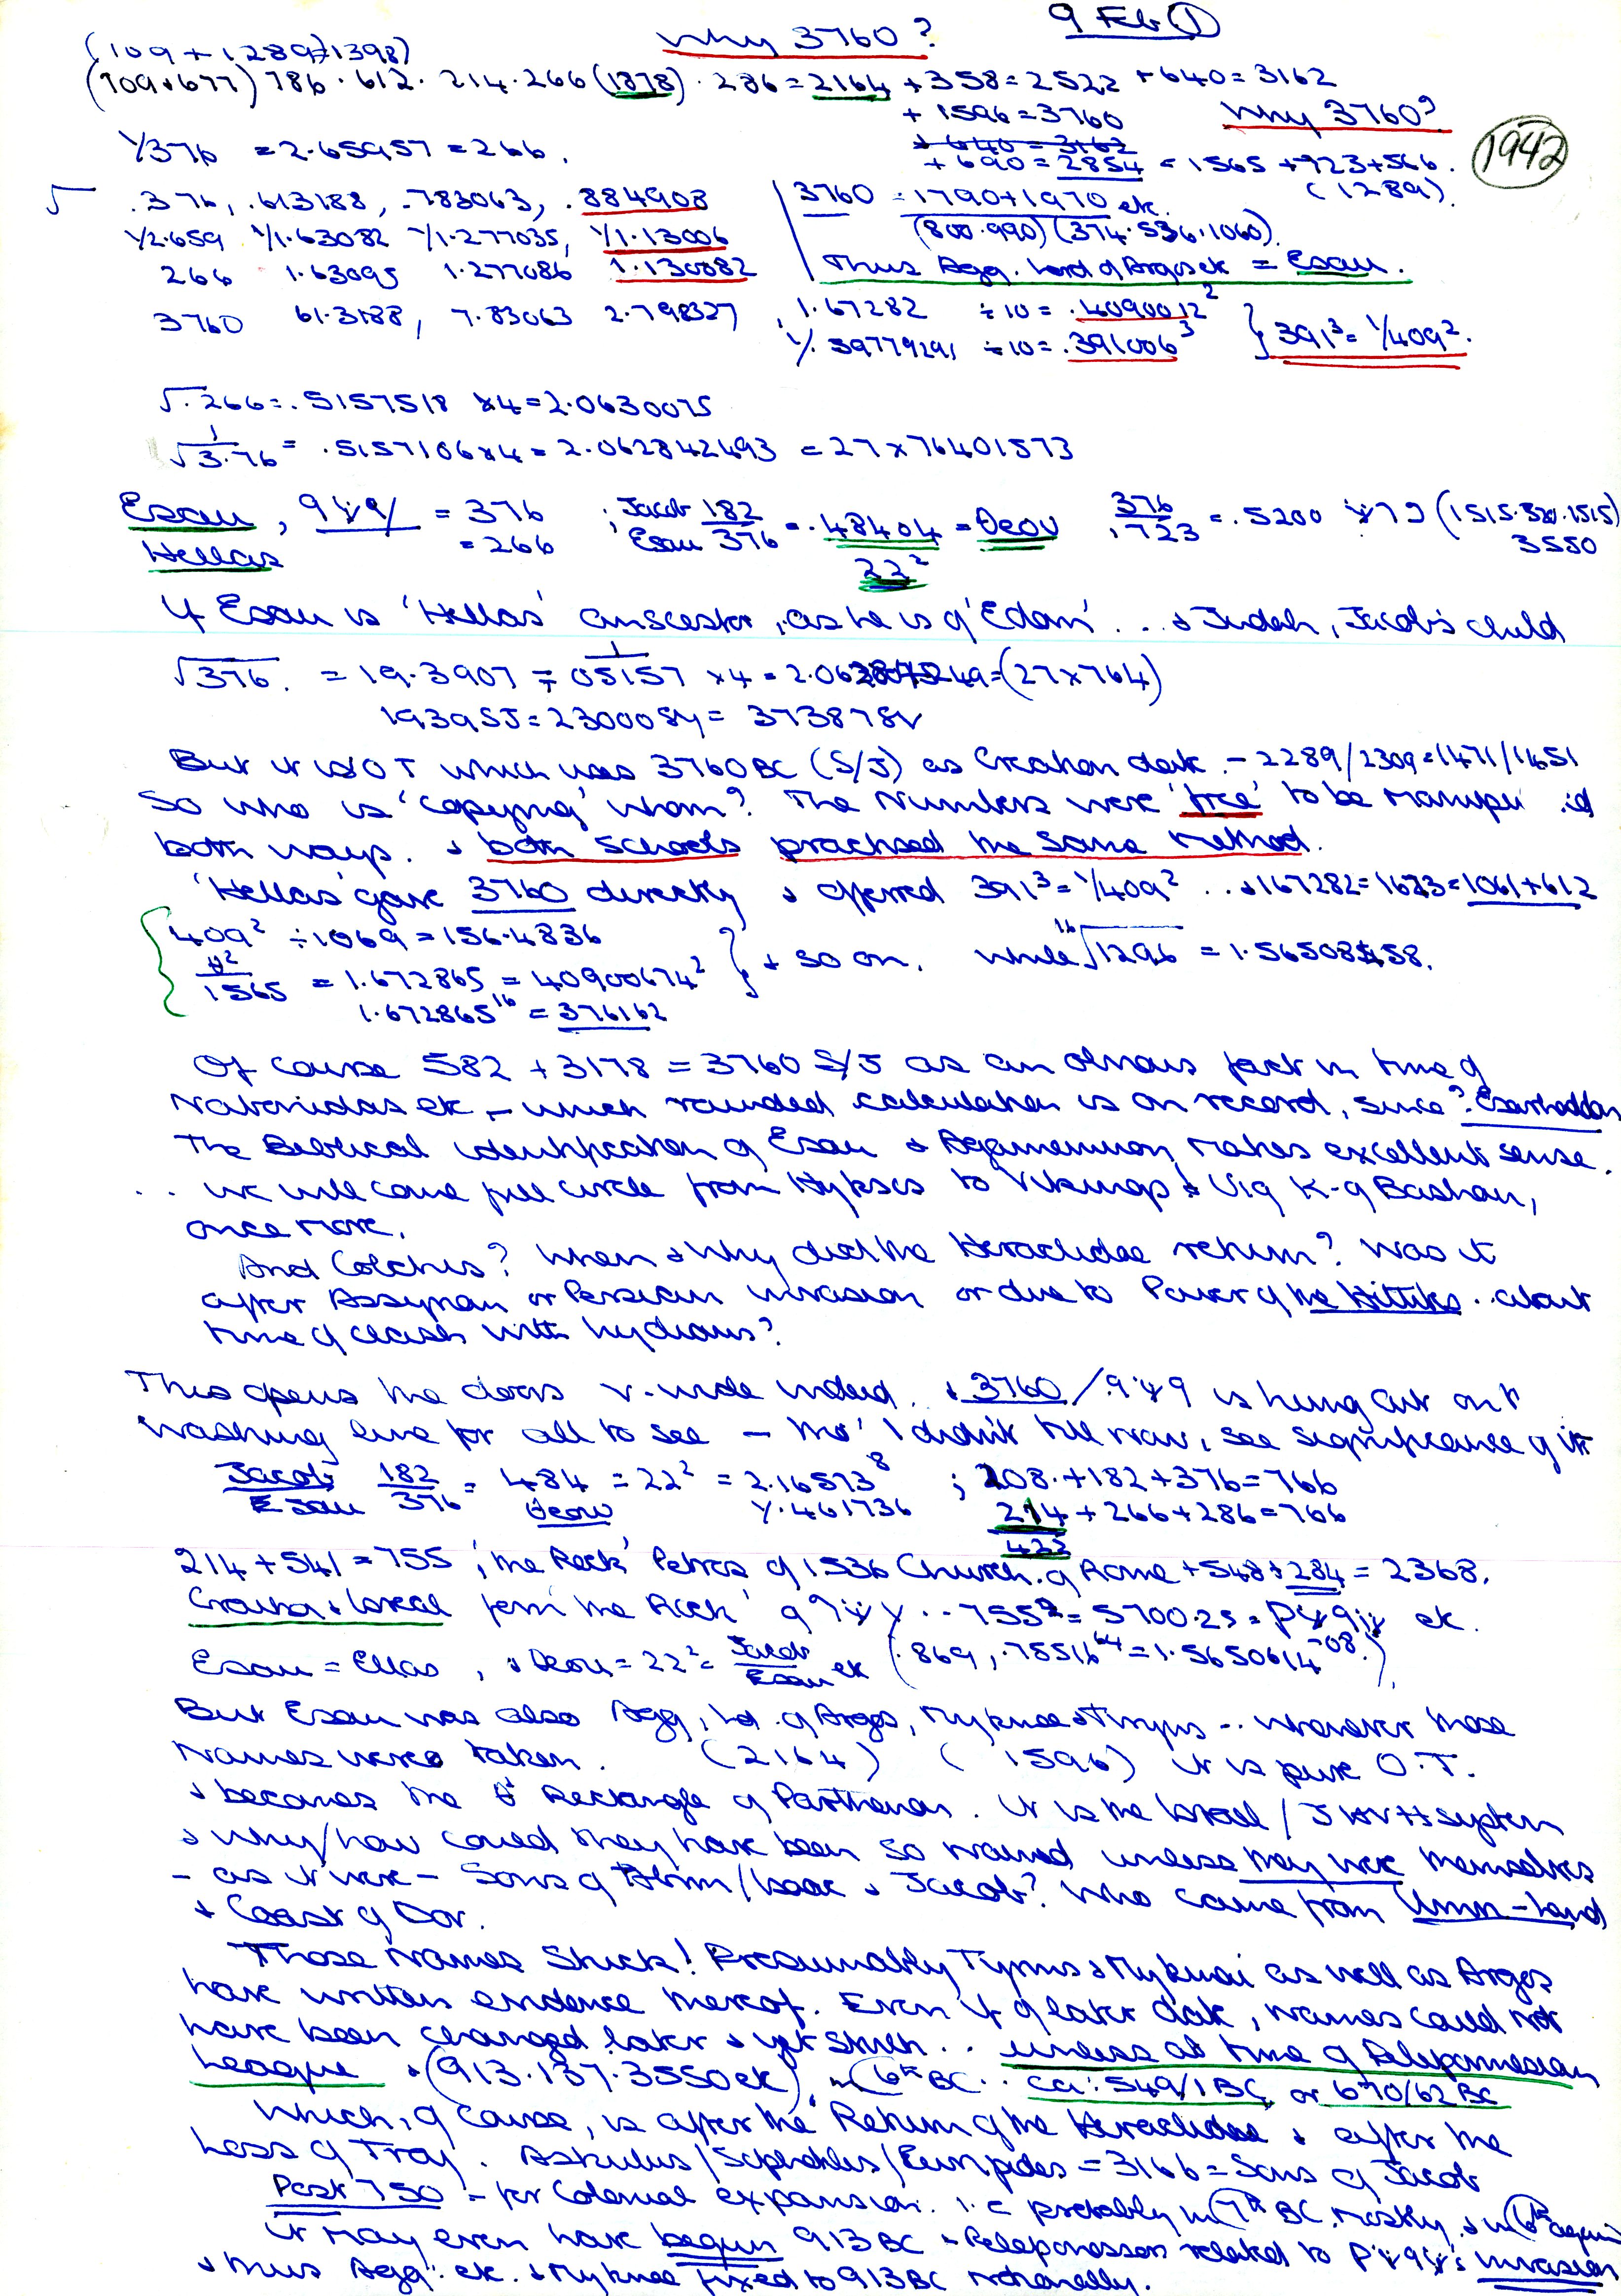 9 Feb (1)
Why 3760?
(109 + 1289 = 1398)
(109+677) 786 · 612 · 214 · 266 (1878) · 286 = 2164 + 358 = 2522 + 640 = 3162
+ 1596 = 3760 Why 3760?
+ 640 = 3162
1/376 = 2.65957 = 266.
+ 690 = 2854 = 1565 + 723 + 566.
(1289)
1942
√ .376, .613188, .783063, .884908
1/2.659 1/1.63082 1/1.277035, 1/1.13006
266 1.63095 1.277086 1.130082
3760 = 1790+1970 etc.
(800.990) (374.536.1060).
Thus Agg. Lord of Argos etc = Esau.
3760 61.3188, 7.83063 2.798327, 1.67282 ÷10 = .4090012²
1/.59779291 ÷10 = .391006³ } 391³ = 1/409².
√.266 = .5157518 x4 = 2.0630075
1/√3.76 = .5157106 x 4 = 2.062842493 = 27 x 76401573
Esau, = 376 ; Jacob 182 / Esau 376 = .48404 = θεου 376/.723 = .5200 (1515.520.1515)
Hellas = 266 22² 3550
If Esau is 'Hellas' anscestor, as he is of 'Edom' . . . & Judah, Jacob's child
√376. = 19.3907 = 1/05157 x4 = (27 x 764)
193955 = 230008y = 373878v
But it is O T which uses 3760 BC (S/J) as Creation date. - 2289/2309 = 1471/1451
So who is 'copying' whom? The Numbers were 'free' to be
both ways. & both schools practised the same method.
'Hellas' gave 3760 directly & offered 391³ = 1/409² . . & 167282 = 1673 = 1061 + 612
409² ÷ 1069 = 156.4836
/1565 = 1.672865 = 40900674² } + so on. while ¹⁶√1296 = 1.565085458.
1.672865¹⁶ = 376162
Of course 582 + 3178 = 3760 S/J as an obvious fact in time of
Nabonidas etc - which rounded calculation is on record, since ? Esarhaddon
The Biblical identification of Esau & Agamemnon makes excellent sense.
. . we will come full circle from Hyksos to Vikings & Uig K. of Bashan,
once more.
And Colchis? When & Why did the Heraclidae return? Was it
after Assyrian or Persian invasion or due to Power of the Hittites . . about
time of clash with Lydians?
This opens the doors v. wide indeed. & 3760/ is hung out on t
washing line for all to see - tho' I didn't till now, see significance of it
Jacob 182 / Esau 376 = 484 = 22² = 2.16573⁸ ; 208.+182+376=766
θεου 1/.461736 214+266+286=766
422
214 + 541 = 755 'the Rock' Petros of 1536 Church. of Rome + 548 + 284 = 2368.
Israel 'the Rock' . . 755² = 5700.25 = etc.
Esau = Ellas, & θεου = 22² = Jacob/Esau etc (.869, .75516⁶⁴ = 1.5650614⁻⁰⁸.)
But Esau was also Agg, Ld. of Argos, Mykenae & Tiryns . . whenever those
Names were taken. (2164) (1596) it is pure O.T.
& becomes the Rectangle of Parthenon. It is the Israel / JHVH system
& why/how could they have been so named unless they were themselves
- as it were - Sons of Abrm/Isaac & Jacob? Who came from Umm-Land
& Coast of Dor.
Those Names Stuck! Presumably Tyrins & Mykenai as well as Argos
have written evidence thereof. Even if of later date, names could not
have been changed later & yet stuck . . unless at time of Peloponnesian
League & (913.137.3550 etc) in 6th BC . . ca: 549/1 BC, or 670/62 BC
Which, of course, is after the Return of the Heraclidae & after the
Loss of Troy. Askulus/Sophokles/Euripides = 3166 = Sons of Jacob
Post 750 - for Colonial expansion. i.e probably in 7th BC mostly, & in 6th again
It may even have begun 913 BC - Peloponessos related to invasion
& thus Agg. etc. & Mykenae fixed to 913 BC notionally.